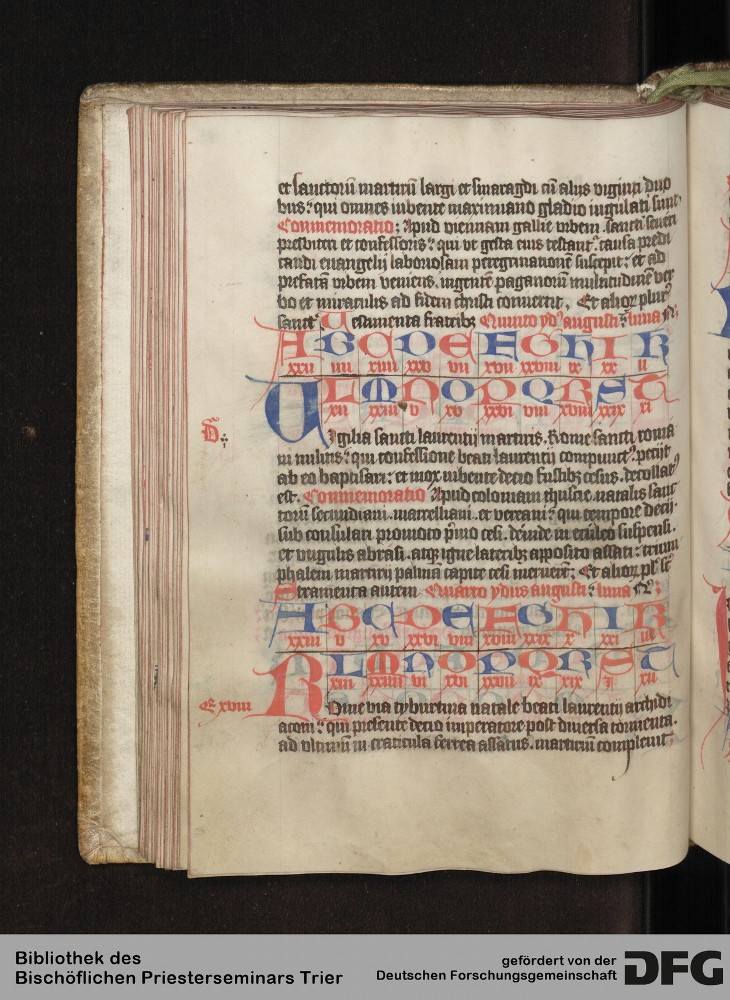 et sanctorū martirū largi et smaragdi cū alijs viginti duo
bus: qui omnes iubente maximiano gladio iugulati sunt
Conmemoratio; Apud viennam gallie vrbem. sancti seueri
presbiteri et confessoris: qui vt gesta eius testant'. causa predi
candi euangelij laboriosam peregrinationē suscepit: et ad
prefatā vrbem veniens. ingentē paganorū multitudinē ver
bo et miraculis ad fidem christi conuertit. Et alior plur'
sanct' Testimenta fratribz Quinto yd' augusti: luna
A B C D E F G h I K
xxii iiii xiiii xxv vii xvii xxviii ix xx ii
L M N O P Q R S T
xii xxiii v xv xxvi viii xviii xxix xi
D.
Vigilia sancti laurentij martiris. Rome sancti roma
ni militis: qui confessione beati laurentij compunct'. petijt
ab eo baptisari: et mox iubente decio fustibz cesus. decollat'
est. Conmemoratio Apud coloniam thuscie. natalis sanc
torū secundiani. marcelliani. et vereani: qui tempore decij
sub consulari promoto primo cesi. deinde in eculeo suspensi.
et vngulis abrasi. atqz igne lateribz apposito assati: trium
phalem martirij palmā capite cesi meruerūt; Et alior pl' sc'
Stramenta autem Quarto ydus augusti: luna
A B C D E F G h I K
xxiii v xv xxvi viii xviii xxix x xxi iii
L M N O P Q R S T
xiii xxiiii vi xvi xxvii ix xix i xii
E xviii
Rome via tyburtina natale beati laurentij archidi
aconi: qui presente decio imperatore post diuersa tormenta.
ad vltimū in craticula ferrea assatus. martiriū compleuit
Bibliothek des
Bischöflichen Priesterseminars Trier
gefördert von der
Deutschen Forschungsgemeinschaft DFG